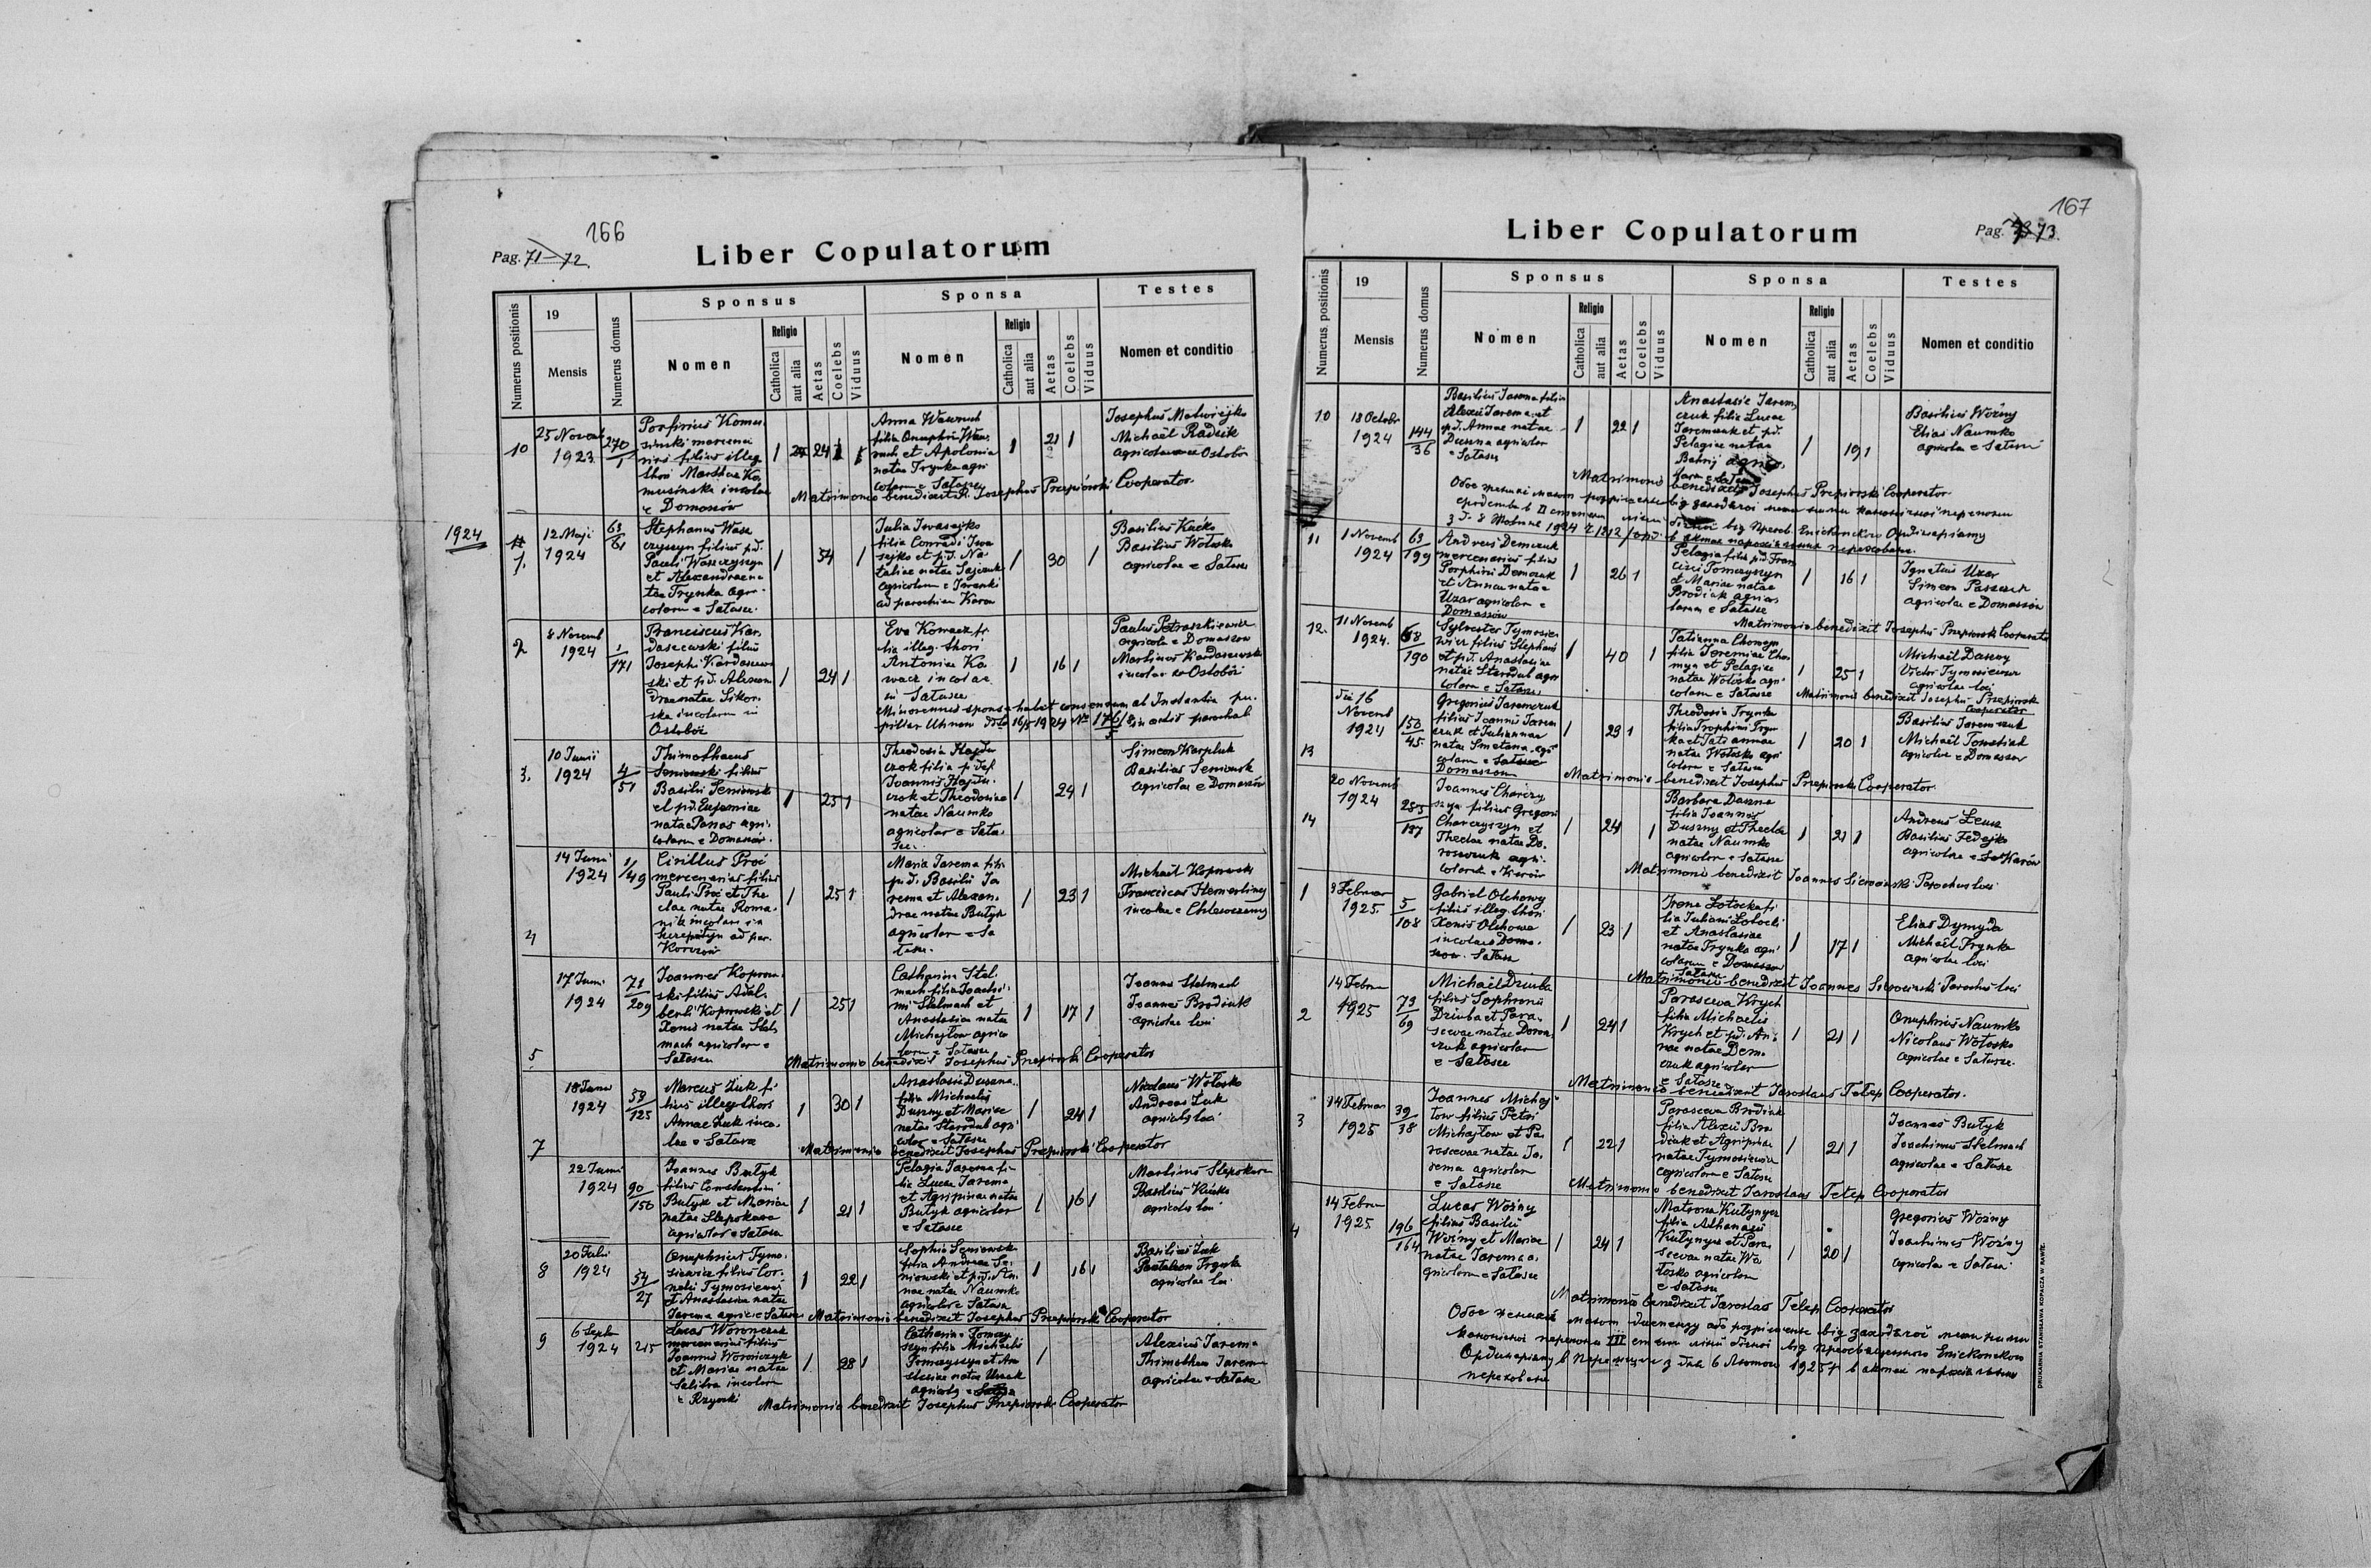 166
Pag. 71-72.
Liber Copulatorum
Numerus positionis
19
Mensis
Numerus domus
Sponsus
Nomen
Religio
Catholica
aut alia
Aetas
Coelebs
Viduus
Sponsa
Nomen
Religio
Catholica
aut alia
Aetas
Coelebs
Viduus
Testes
Nomen et conditio
10
25 Novemb
1923
270/1
Porfirius Komu-
sinski mercena-
rius filius illeg.
thori Marthae Ko
musinska incolae
e Domaszów
1
24
Anna Wawruch
filia Onuphrii Waw-
ruch et Apolonia
natae Trynka agri
colarum e Sałasze
1
21 1
Josephus Matwiejko
Michaël Radzik
agricolae Ostobiż
Matrimonio benedixit Josephus Przepiórski Cooperator
1924
1.
12 Maji
1924
63/61
Stephanus Wasz
czyszyn filius p.d.
Pauli Waszczyszyn
et Alexandrae na-
tae Trynka agri-
colarum e Sałasze.
1
54
1
Julia Iwasejko
filia Conradi Iwa
sejko et p.d. Na
taliae natae
agricolarum e Iwanki
ad parochiam Karow
1
30
1
Basilius Kućko
Basilius Wołosko
agricolae e Sałasze
2
8 Novemb
1924
1/171
Franciscus Kar-
daszewski filius
Josephi Kardaszew
ski et p.d. Alexan
drae natae Sikor-
ska incolarum in
Ostobiż
1
24 1
Eva Kowacz fi
lia illeg. thori
Antoniae Ko
wacz incolae
in Sałasze
1
16 1
Paulus Petraszkiewicz
agricola e Domaszow
Martinus Kardaszewski
incolae e Ostobiż
Minorennis sponsa habet consensum ab Instantia pu-
pillar Uhnow dto 16/5 1924 No 176/ in actis parochial
3.
10 Junii
1924
4/51
Thimotheus
Seniowski filius
Basilii Seniowski
et p.d. Eufemiae
natae Panas agri-
colarum e Domaszów.
1
25 1
Theodosia Hajdu
czok filia p. def.
Joannis Hajdu-
czok et Theodosiae
natae Naumko
agricolar e Sała-
sze.
1
24 1
Simeon Karpluk
Basilius Seniowsk
agricolae e Domaszów
4
14 Junii
1924
1/49
Cirillus Proć
mercenarius filius
Pauli Proć et The
clae natae Roma-
nik incolarum in
ad par.
Korczów
1
25 1
Maria Jarema fili
p.d. Basilii Ja
rema et Alexan-
drae natae Butyk
agricolar e Sa
łasze.
1
23 1
Michaël Koprowski
Franciscus Hemerling
incolae e
5
17 Junii
1924
71/209
Joannes Koprow-
ski filius Adal-
berti Koprowski et
Xeniae natae Stel-
mach agricolarum e
Sałasze
1
25 1
Catharina Stel-
mach filia Joachi-
mi Stelmach et
Anastasiae natae
Michajłow agrico
larum e Sałasze
1
17 1
Joannes Stelmach
Joannes Brodiuk
agricolae loci
Matrimonio benedixit Josephus Przepiorski Cooperator
7
18 Junii
1924
53/125
Marcus Żuk fi
lius illeg thori
Annae Żuk inco-
lae e Sałasze
1
30 1
Anastasia Duszna
filia Michaelis
Duszny et Mariae
natae Starodub agri
color e Sałasze
1
24 1
Nicolaus Wołosko
Andreas Żuk
agricolae loci
Matrimonio benedixit Josephus Przepiorski Cooperator
22 Junii
1924
90/150
Joannes Butyk
filius Constantini
Butyk et Mariae
natae Slepokura
agricolar e Sałasze
1
21 1
Pelagia Jarema fi-
lia Lucae Jarema
et Agripinae natae
Butyk agricolar
e Sałasze
1
16 1
Martinus Slepokura
Basilius Kućko
agricolae loci
8
20 Julii
1924
54/27
Onuphrius Tymo-
siewicz filius Cor-
nelii Tymosiewicz
et Anastasiae natae
Jarema agric e Sałasze
1
22 1
Sophia Seniowska
filia Andreae Se-
niowski et p.d. An-
nae natae Naumko
agricolar e Sałasze
1
16 1
Basilius Żuk
Pantaleon Trynka
agricolae loci
Matrimonio benedixit Josephus Przepiorski Cooperator
9
6 Septbr
1924
215
Lucas Woronczuk
mercenarius filius
Joannis Woronczyk
et Mariae natae
Saliba incolarum
e Rzyczki
1
28 1
Catharina Tomczy
szyn filia Michaelis
Tomczyszyn et Ana
stasiae natae
agricola e
1
Alexius Jarema
Thimotheus Jarema
agricolae e Sałasze
Matrimonio benedixit Josephus Przepiorski Cooperator
167
Liber Copulatorum
Pag. 73.
Numerus positionis
19
Mensis
Numerus domus
Sponsus
Nomen
Religio
Catholica
aut alia
Aetas
Coelebs
Viduus
Sponsa
Nomen
Religio
Catholica
aut alia
Aetas
Coelebs
Viduus
Testes
Nomen et conditio
10
18 Octobr
1924
144/36
Basilius Jarema filius
Alexii Jarema et
p.d. Annae natae
Duszna agricolar
e Sałasze
1
22 1
Anastasia Jarem
czuk filia Lucae
Jaremczuk et p.d.
Pelagiae natae
Batrij agrico-
larum e Sałasze
1
19 1
Basilius Woźny
Elias Naumko
agricolae e Sałasze
Matrimonio benedixit Josephus Przepiorski Cooperator
11
1 Novemb
1924
63/199
Andreas Demczuk
mercenarius filius
Porphirii Demczuk
et Annae natae
Uzar agricolarum e
Domaszów
1
26 1
Pelagia filia p.d. Fran
cisci Tomczyszyn
et Mariae natae
Brodiuk agrico
larum e Sałasze
1
16 1
Ignatius Uzar
Simeon
agricolae e Domaszów
Matrimonio benedixit Josephus Przepiorski Cooperator
12.
11 Novemb
1924.
68/190
Sylvester Tymosie
wicz filius Stephani
et p.d. Anastasiae
natae Starodub agri
colarum e Sałasze.
1
40
1
Tatianna Chomyn
filia Jeremiae Cho
myn et Pelagiae
natae Wołosko agri-
colarum e Sałasze
1
25 1
Michaël Duszny
Victor Tymosiewicz
agricolae loci
Matrimonio benedixit Josephus Przepiorski
Cooperator
13
die 16
Novemb
1924
150/45
Gregorius Jaremczuk
filius Joannis Jarem
czuk et Julianna
natae Smetana agri
colarum e
Domaszow
1
23 1
Theodosia Trynka
filia Trophimi Tryn
ka et Tatiannae
natae Wołosko agri
colarum e Sałasze
1
20 1
Basilius Jaremczuk
Michaël
agricolae e Domaszow
Matrimonio benedixit Josephus Przepiorski Cooperator
14
20 Novemb
1924
255/137
Joannes Charczy
szyn filius Gregorii
Charczyszyn et
Theclae natae Do-
roszczuk agri-
colarum e Karów
1
24
1
Barbara Duszna
filia Joannis
Duszny et Theclae
natae Naumko
agricolar e Sałasze
1
21 1
Andreas
Basilius Fedejko
agricolae e Karów
Matrimonio benedixit Joannes Sierocinski Parochus loci
1
8 Februar
1925.
5/108
Gabriel Olchowy
filius illeg. thori
Xeniae Olchowa
incolae e Doma-
szow. Sałasze
1
23 1
Irena Łotocka fi
lia Juliani Łotocki
et Anastasiae
natae Trynka agri-
colarum e Domaszow
Sałasze
1
17 1
Elias Dymyda
Michaël Trynka
agricolae loci
Matrimonio benedixit Joannes Sierocinski Parochus loci
2
14 Febru
1925
73/69
Michaël Dziuba
filius Sophronii
Dziuba et Para-
scevae natae Dorna-
czuk agricolarum
e Sałasze
1
24 1
Parasceva Krych
filia Michaelis
Krych et p.d. An-
nae natae Dem-
czuk agricolar
e Sałasze
1
21 1
Onuphrius Naumko
Nicolaus Wołosko
agricolae e Sałasze.
Matrimonio benedixit Jaroslaus Telep Cooperator.
3
14 Februar
1925
39/38
Joannes Michaj
łow filius Petri
Michajłow et Pa
rascevae natae Ja-
rema agricolarum
e Sałasze
1
22 1
Parasceva Brodiuk
filia Alexii Bro
diuk et Agripinae
natae Tymosiewicz
agricolarum e Sałasze
1
21 1
Joannes Butyk
Joachimus Stelmach
agricolae e Sałasze
Matrimonio benedixit Jaroslaus Telep Cooperator
4
14 Februar
1925
196/164
Lucas Woźny
filius Basilii
Woźny et Mariae
natae Jarema a-
gricolarum e Sałasze
1
24 1
Matrona Kutynycz
filia Athanasii
Kutynycz et Para-
scevae natae Wo-
łosko agricolarum
e Sałasze
1
20 1
Gregorius Woźny
Joachimus Woźny
agricolae e Sałasze
Matrimonio benedixit Jaroslaus Telep Cooperator
DRUKARNIA STANISŁAWA KOPACZA W RAWIE.